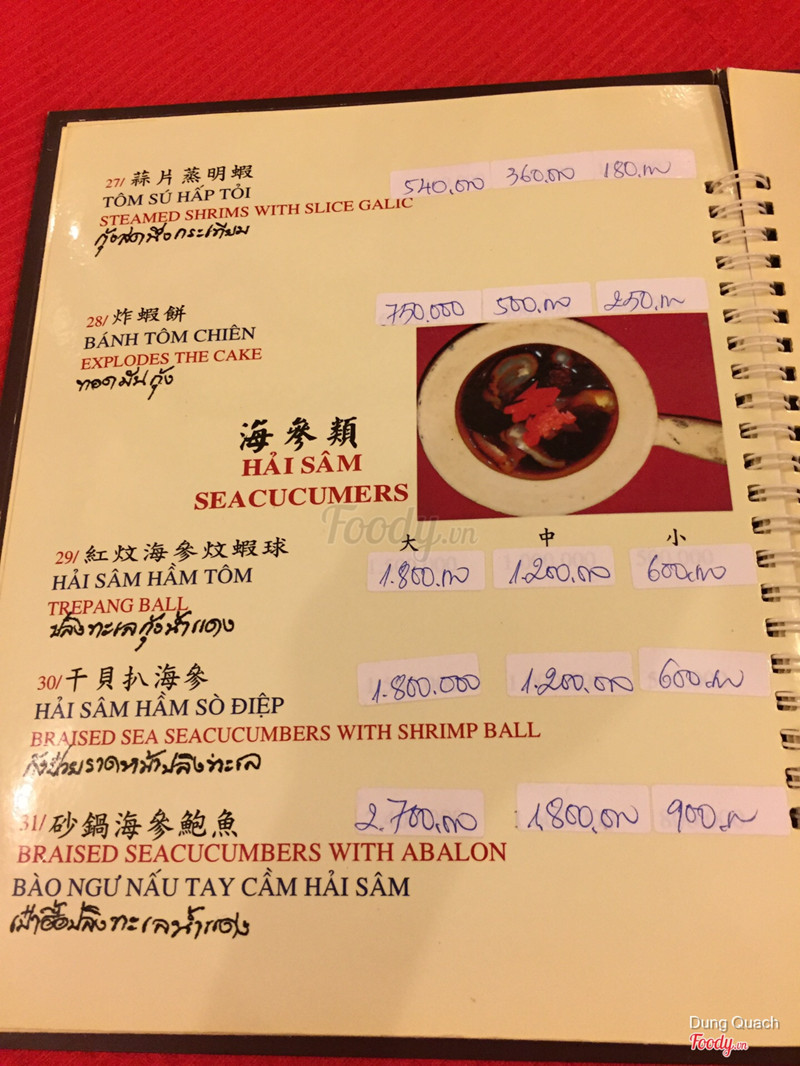 27/ 蒜片蒸明蝦
540.000 360.000 180.000
TÔM SÚ HẤP TỎI
STEAMED SHRIMS WITH SLICE GALIC
กุ้งสดนึ่งกระเทียม
28/ 炸蝦餅
750.000 500.000 250.000
BÁNH TÔM CHIÊN
EXPLODES THE CAKE
ทอดมันกุ้ง
海參類
HẢI SÂM
SEACUCUMERS
大 中 小
29/ 紅炆海參炆蝦球
1.800.000 1.200.000 600.000
HẢI SÂM HẦM TÔM
TREPANG BALL
ปลิงทะเลกุ้งน้ำแดง
30/ 干貝扒海參
1.800.000 1.200.000 600.000
HẢI SÂM HẦM SÒ ĐIỆP
BRAISED SEA SEACUCUMBERS WITH SHRIMP BALL
กังป๋วยราดหน้าปลิงทะเล
31/ 砂鍋海參鮑魚
2.700.000 1.800.000 900.000
BRAISED SEACUCUMBERS WITH ABALON
BÀO NGƯ NẤU TAY CẦM HẢI SÂM
เป๋าฮื้อปลิงทะเลน้ำแดง
Foody.vn
Dung Quach
Foody.vn